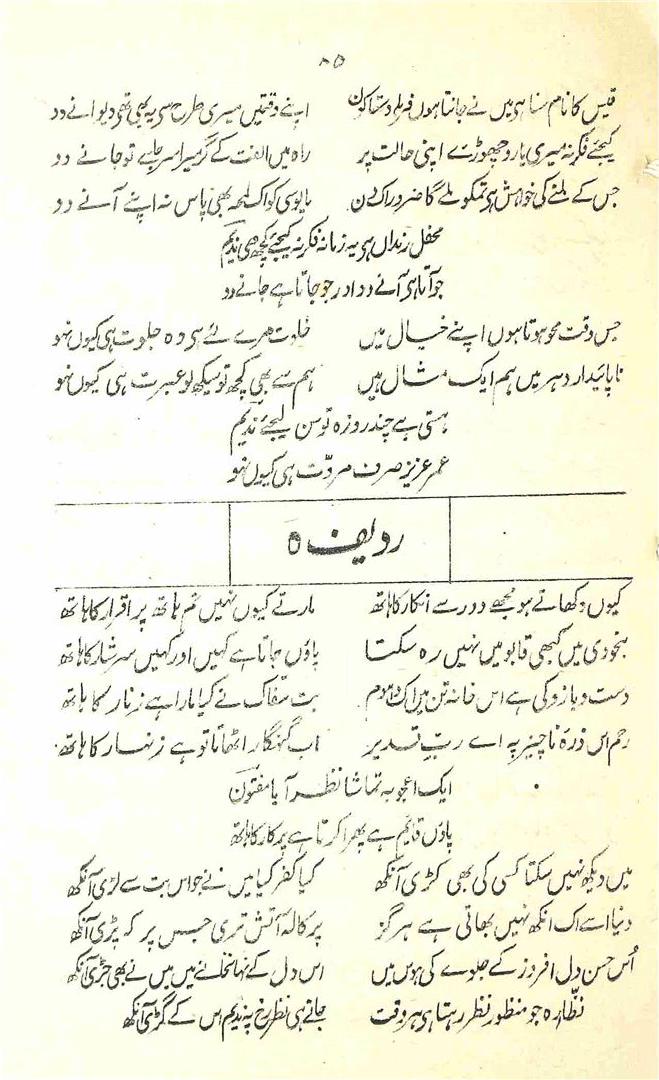 ۸۵
قیس کا نام سنا ہی میں نے جانتا ہوں فرہاد کو اپنے وقتیں میری طرح سے یہ بھی تھی دیوانے دو
کیجئے فکر نہ میری یارو چھوڑے اپنی حالت پر راہ میں الفت کے گر میرا سر جائے تو جانے دو
جس کے ملنے کی خواہش ہی تمکو ملے گا ضرور اک دن مایوسی کو اک لمحہ بھی پاس نہ اپنے آنے دو
محفل رنداں ہی یہ زمانہ فکر نہ کیجئے کچھ بھی ندیم
جو آتا ہی آنے دو اور جو جاتا ہے جانے دو
جس وقت محو ہوتا ہوں اپنے خیال میں خلوت مرے لئے ہی وہ جلوت ہی کیوں نہو
ناپائیدار دہر میں ہم ایک مثال ہیں ہم سے بھی کچھ تو سیکھ لو عبرت ہی کیوں نہو
ہستی ہے چند روزہ تو سن لیجئے ندیم
عمر عزیز صرف مروّت ہی کیوں نہو
ردیف ہ
کیوں دکھاتے ہو مجھے دور سے انکار کا ہاتھ مارتے کیوں نہیں تم ہاتھ پر اقرار کا ہاتھ
بیخودی میں کبھی قابو میں نہیں رہ سکتا پاؤں جاتا ہے کہیں اور کہیں سرشار کا ہاتھ
دست و بازو کی ہے اس خانہ تن میں اک دھوم بت سفّاک نے کیا مارا ہے زنار کا ہاتھ
رحم اس ذرّہ ناچیز پہ اے ربّ قدیر اب گنہگار اٹھاتا تو ہے زنہار کا ہاتھ
ایک اعجوبہ تماشا نظر آیا مفتون
پاؤں قایم ہے پھرا کرتا ہے پرکار کا ہاتھ
میں دیکھ نہیں سکتا کسی کی بھی کڑی آنکھ کیا کفر کیا میں نے جو اس بت سے لڑی آنکھ
دنیا اسے اک انکھ نہیں بھاتی ہے ہرگز پرکالہ آتش تری جس پر کہ پڑی آنکھ
اُس حسن دل افروز کے جلوے کی ہوس میں اس دل کے نہانخانے میں میں نے بھی جڑی آنکھ
نظّارہ جو منظور نظر رہتا ہی ہر وقت جاتے ہی نظر رخ پہ ندیم اس کے گڑی آنکھ